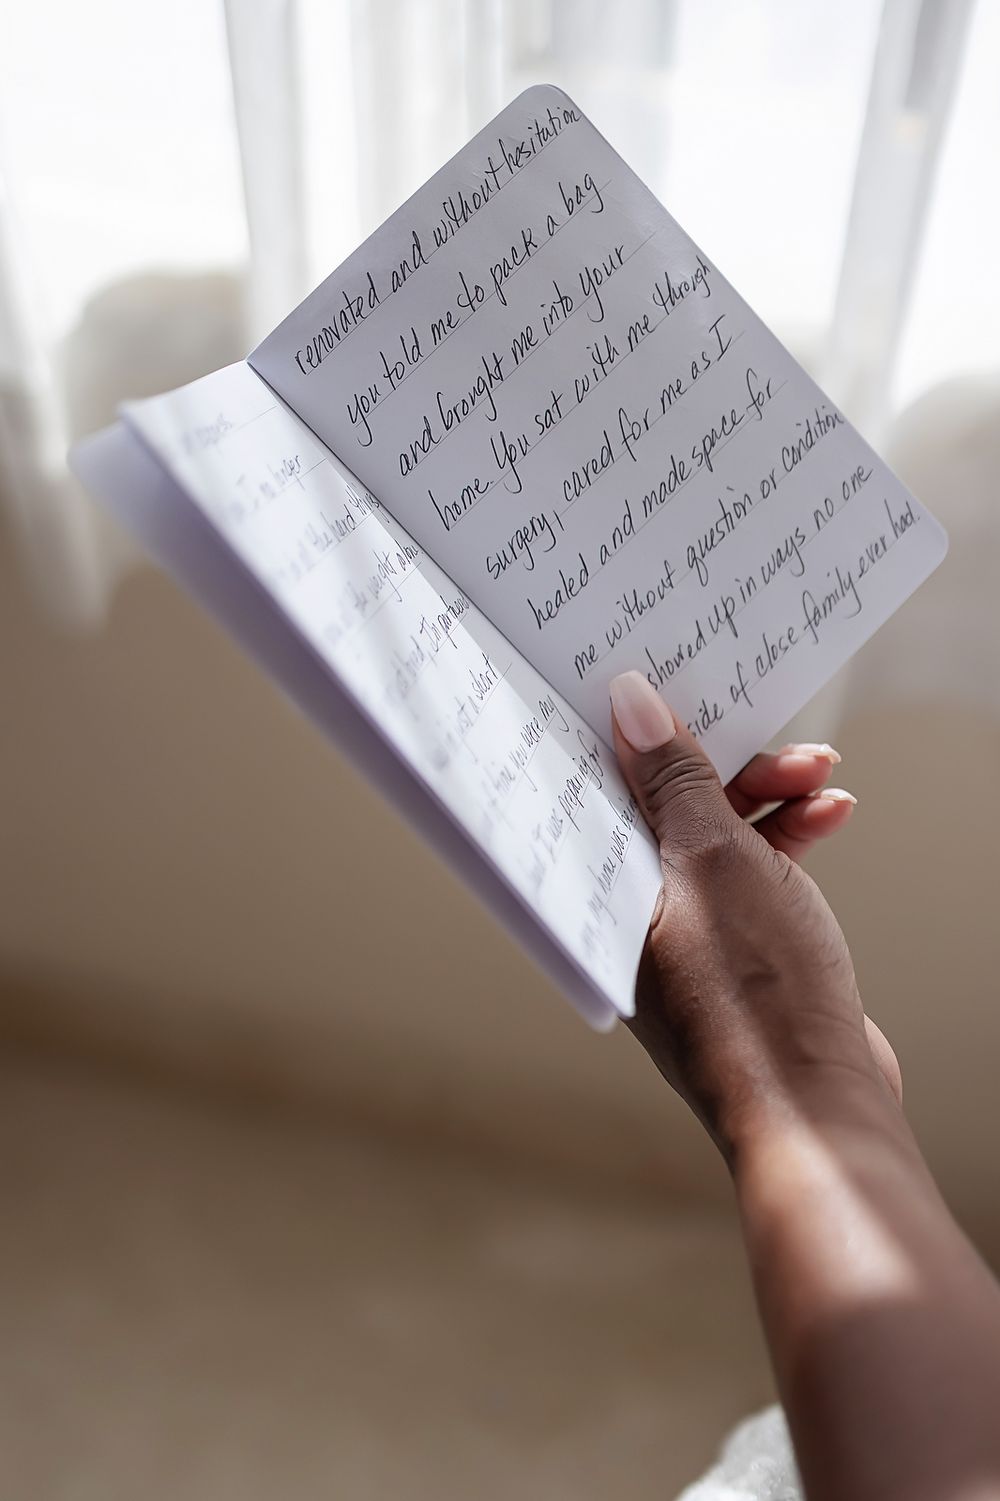 no longer
all the hard things
the weight alone.
In partner
just a short
time you were my
I was preparing for
my home was being
renovated and without hesitation
you told me to pack a bag
and brought me into your
home. You sat with me through
surgery, cared for me as I
healed and made space for
me without question or condition
showed up in ways no one
side of close family ever had.